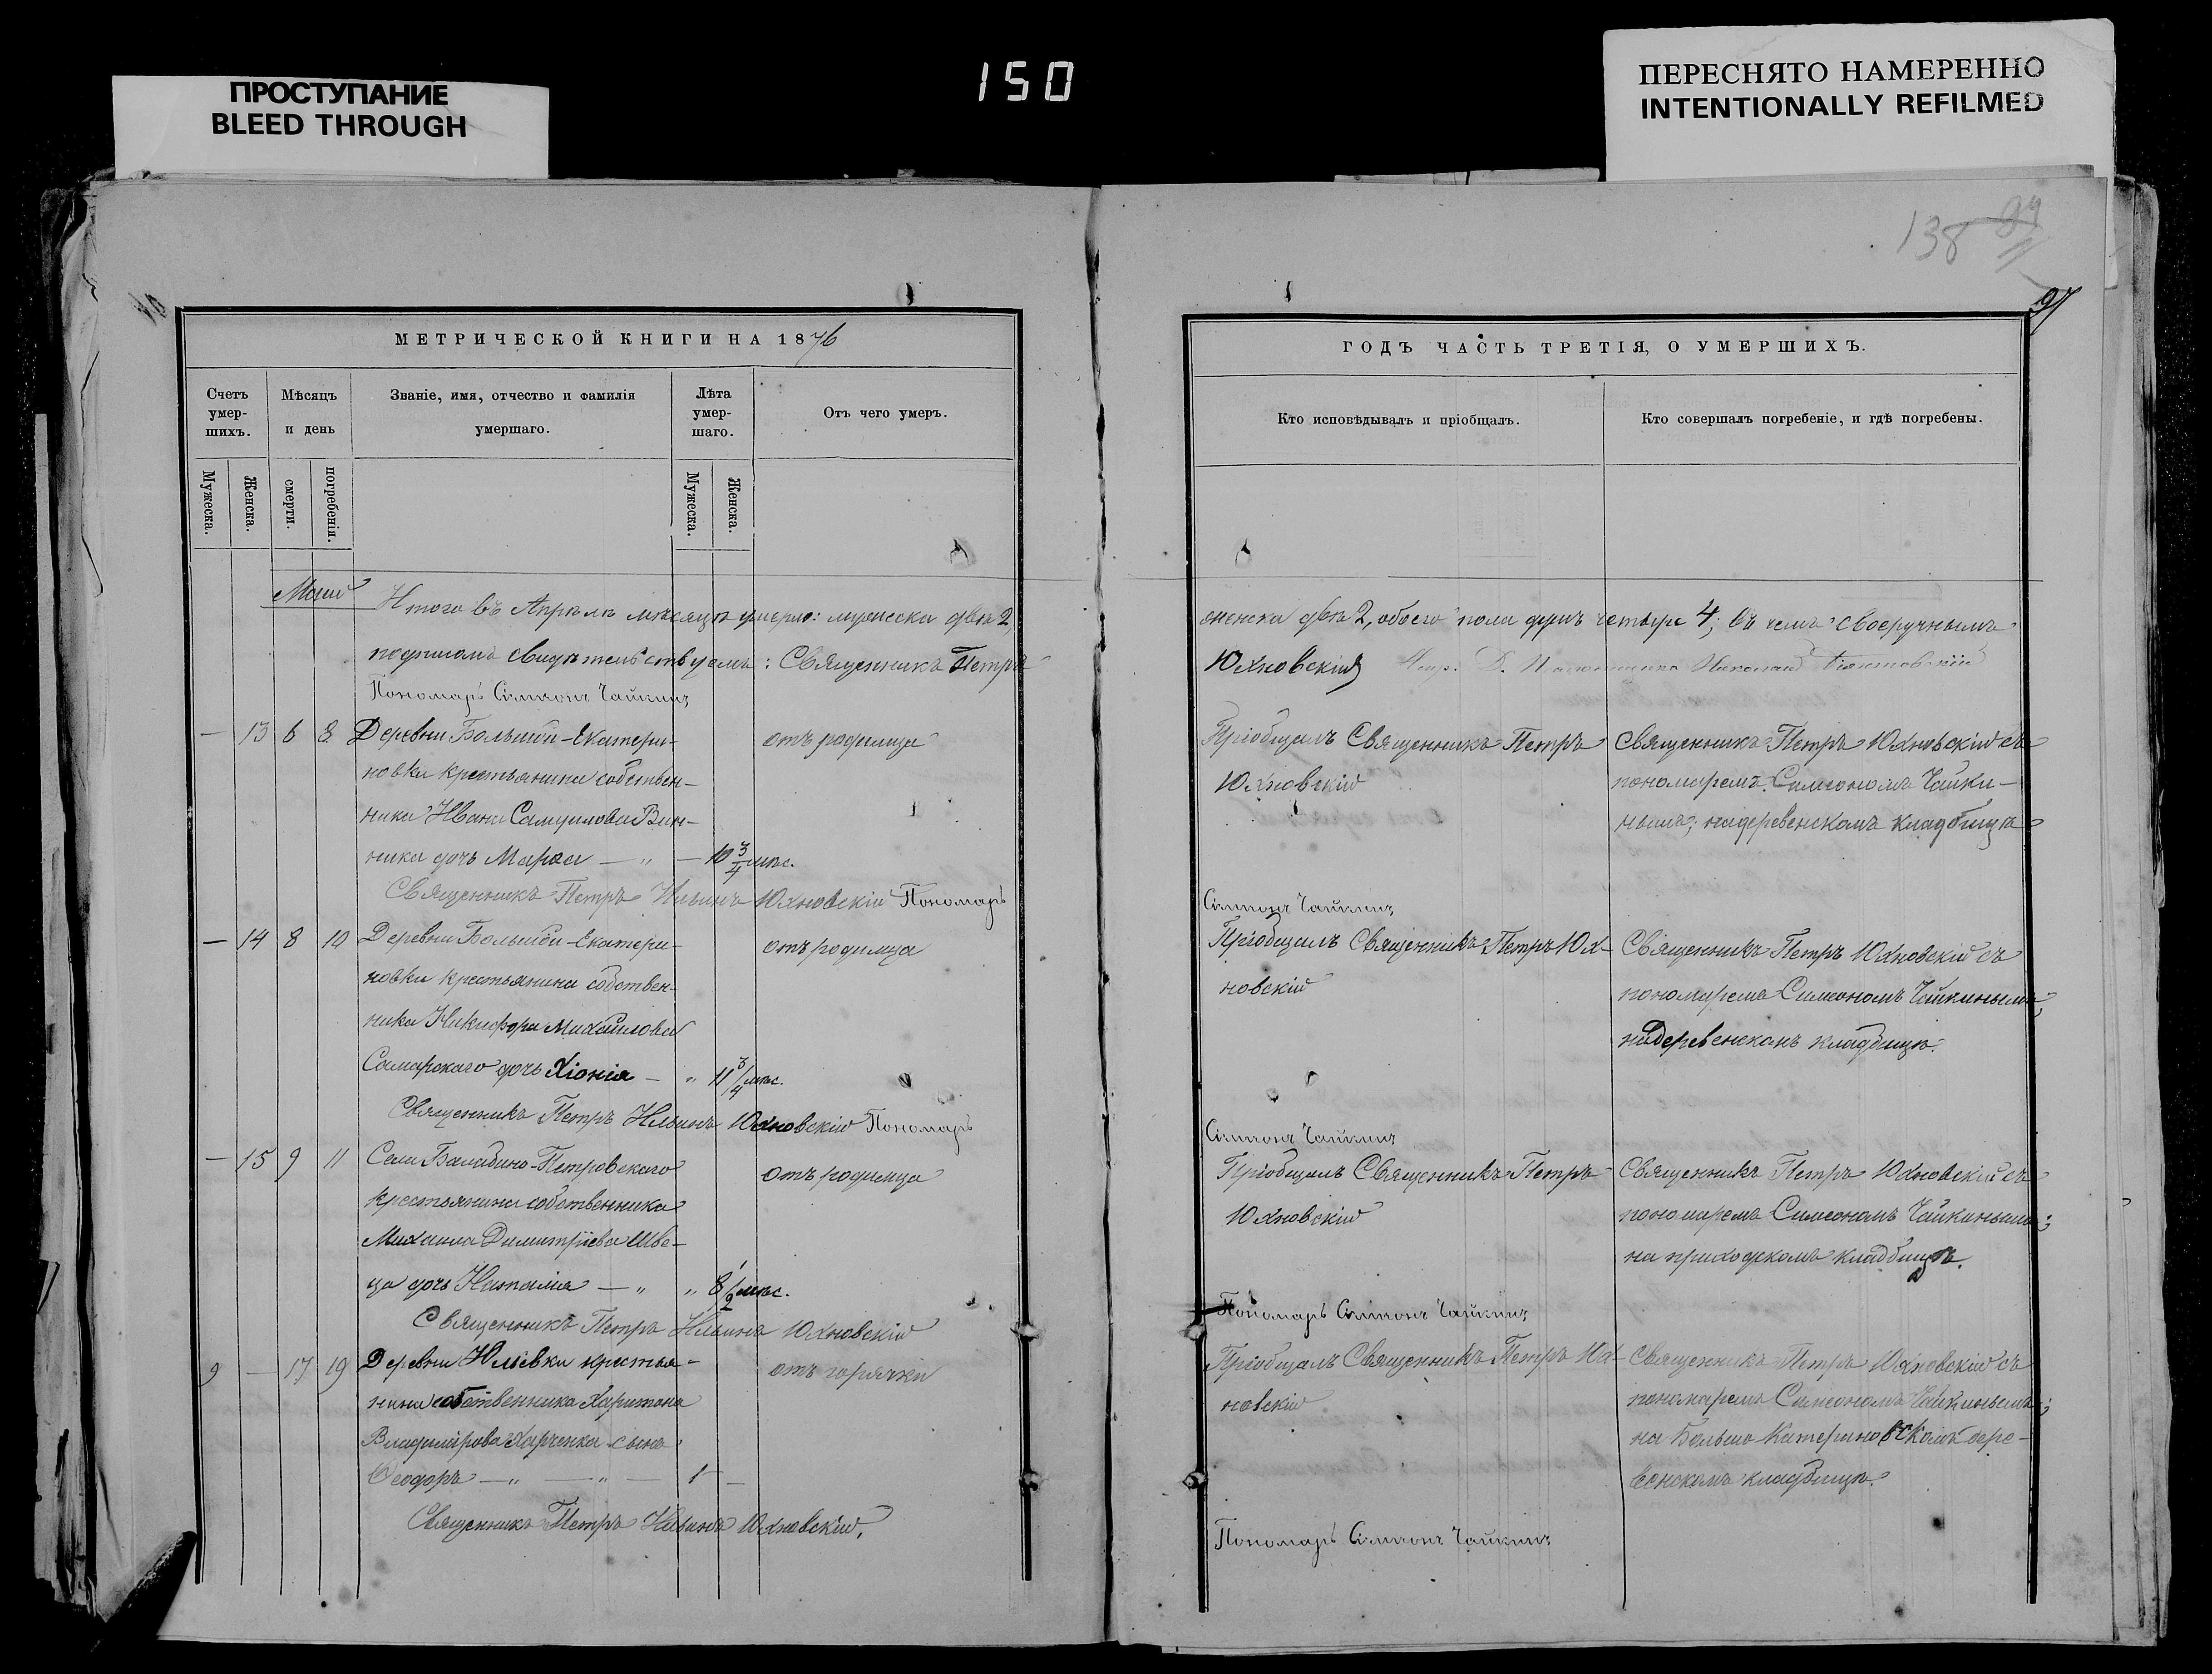 ПРОСТУПАНИЕ
BLEED THROUGH
150
ПЕРЕСНЯТО НАМЕРЕННО
INTENTIONALLY REFILMED
138
97
МЕТРИЧЕСКОЙ КНИГИ НА 1876
Счетъ умер-шихъ.
Мѣсяцъ и день
Званіе, имя, отчество и фамилія умершаго.
Лѣта умер-шаго.
Отъ чего умеръ.
Мужеска.
Женска.
смерти.
погребенія.
Мужеска.
Женска.
Маій
Итого въ Апрѣлѣ мѣсяцѣ умерло: мужеска два 2,
подписомъ свидѣтельствуемъ: Священникъ Петръ
Пономарь Симеонъ Чайкинъ
— 13 6 8 Деревни Большой-Екатери- отъ родимца
новки крестьянина собствен-
ника Ивана Самуилова Вин-
ника дочь Марѳа — „ — 10 3/4 мѣс.
Священникъ Петръ Ильинъ Юхновскій Пономарь
— 14 8 10 Деревни Большой-Екатери- отъ родимца
новки крестьянина собствен-
ника Никифора Михайлова
Самарскаго дочь Хіонія — „ 11 3/4 мѣс.
Священникъ Петръ Ильинъ Юхновскій Пономарь
— 15 9 11 Села Балабино-Петровскаго отъ родимца
крестьянина собственника
Михаила Димитріева Шве-
ца дочь Наталія — „ „ 8 1/2 мѣс.
Священникъ Петръ Ильинъ Юхновскій
9 — 17 19 Деревни Юльевки крестья- отъ горячки
нина собственника Харитона
Владимірова Харченка сынъ
Ѳеодоръ — „ — „ — 1 —
Священникъ Петръ Ильинъ Юхновскій.
ГОДЪ ЧАСТЬ ТРЕТІЯ, О УМЕРШИХЪ.
Кто исповѣдывалъ и пріобщалъ.
Кто совершалъ погребеніе, и гдѣ погребены.
женска двѣ 2, обоего пола душъ четыре 4; въ чемъ своеручнымъ
Юхновскій Николай
Пріобщалъ Священникъ Петръ
Юхновскій
Священникъ Петръ Юхновскій съ
пономаремъ Симеономъ Чайки-
нымъ; на деревенскомъ кладбищѣ
Симеонъ Чайкинъ
Пріобщалъ Священникъ Петръ Юх-
новскій
Священникъ Петръ Юхновскій съ
пономаремъ Симеономъ Чайкинымъ;
на деревенскомъ кладбищѣ.
Симеонъ Чайкинъ
Пріобщалъ Священникъ Петръ
Юхновскій
Священникъ Петръ Юхновскій съ
пономаремъ Симеономъ Чайкинымъ;
на приходскомъ кладбищѣ.
Пономарь Симеонъ Чайкинъ
Пріобщалъ Священникъ Петръ Юх-
новскій
Священникъ Петръ Юхновскій съ
пономаремъ Симеономъ Чайкинымъ;
на Больше-Катериновскомъ дере-
венскомъ кладбищѣ.
Пономарь Симеонъ Чайкинъ